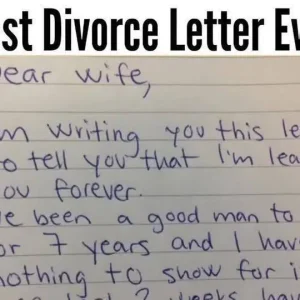 st Divorce Letter Ev
ear wife,
m writing you this le
o tell you that I'm lea
ou forever.
ve been a good man to
or 7 years and I hav
nothing to show for i